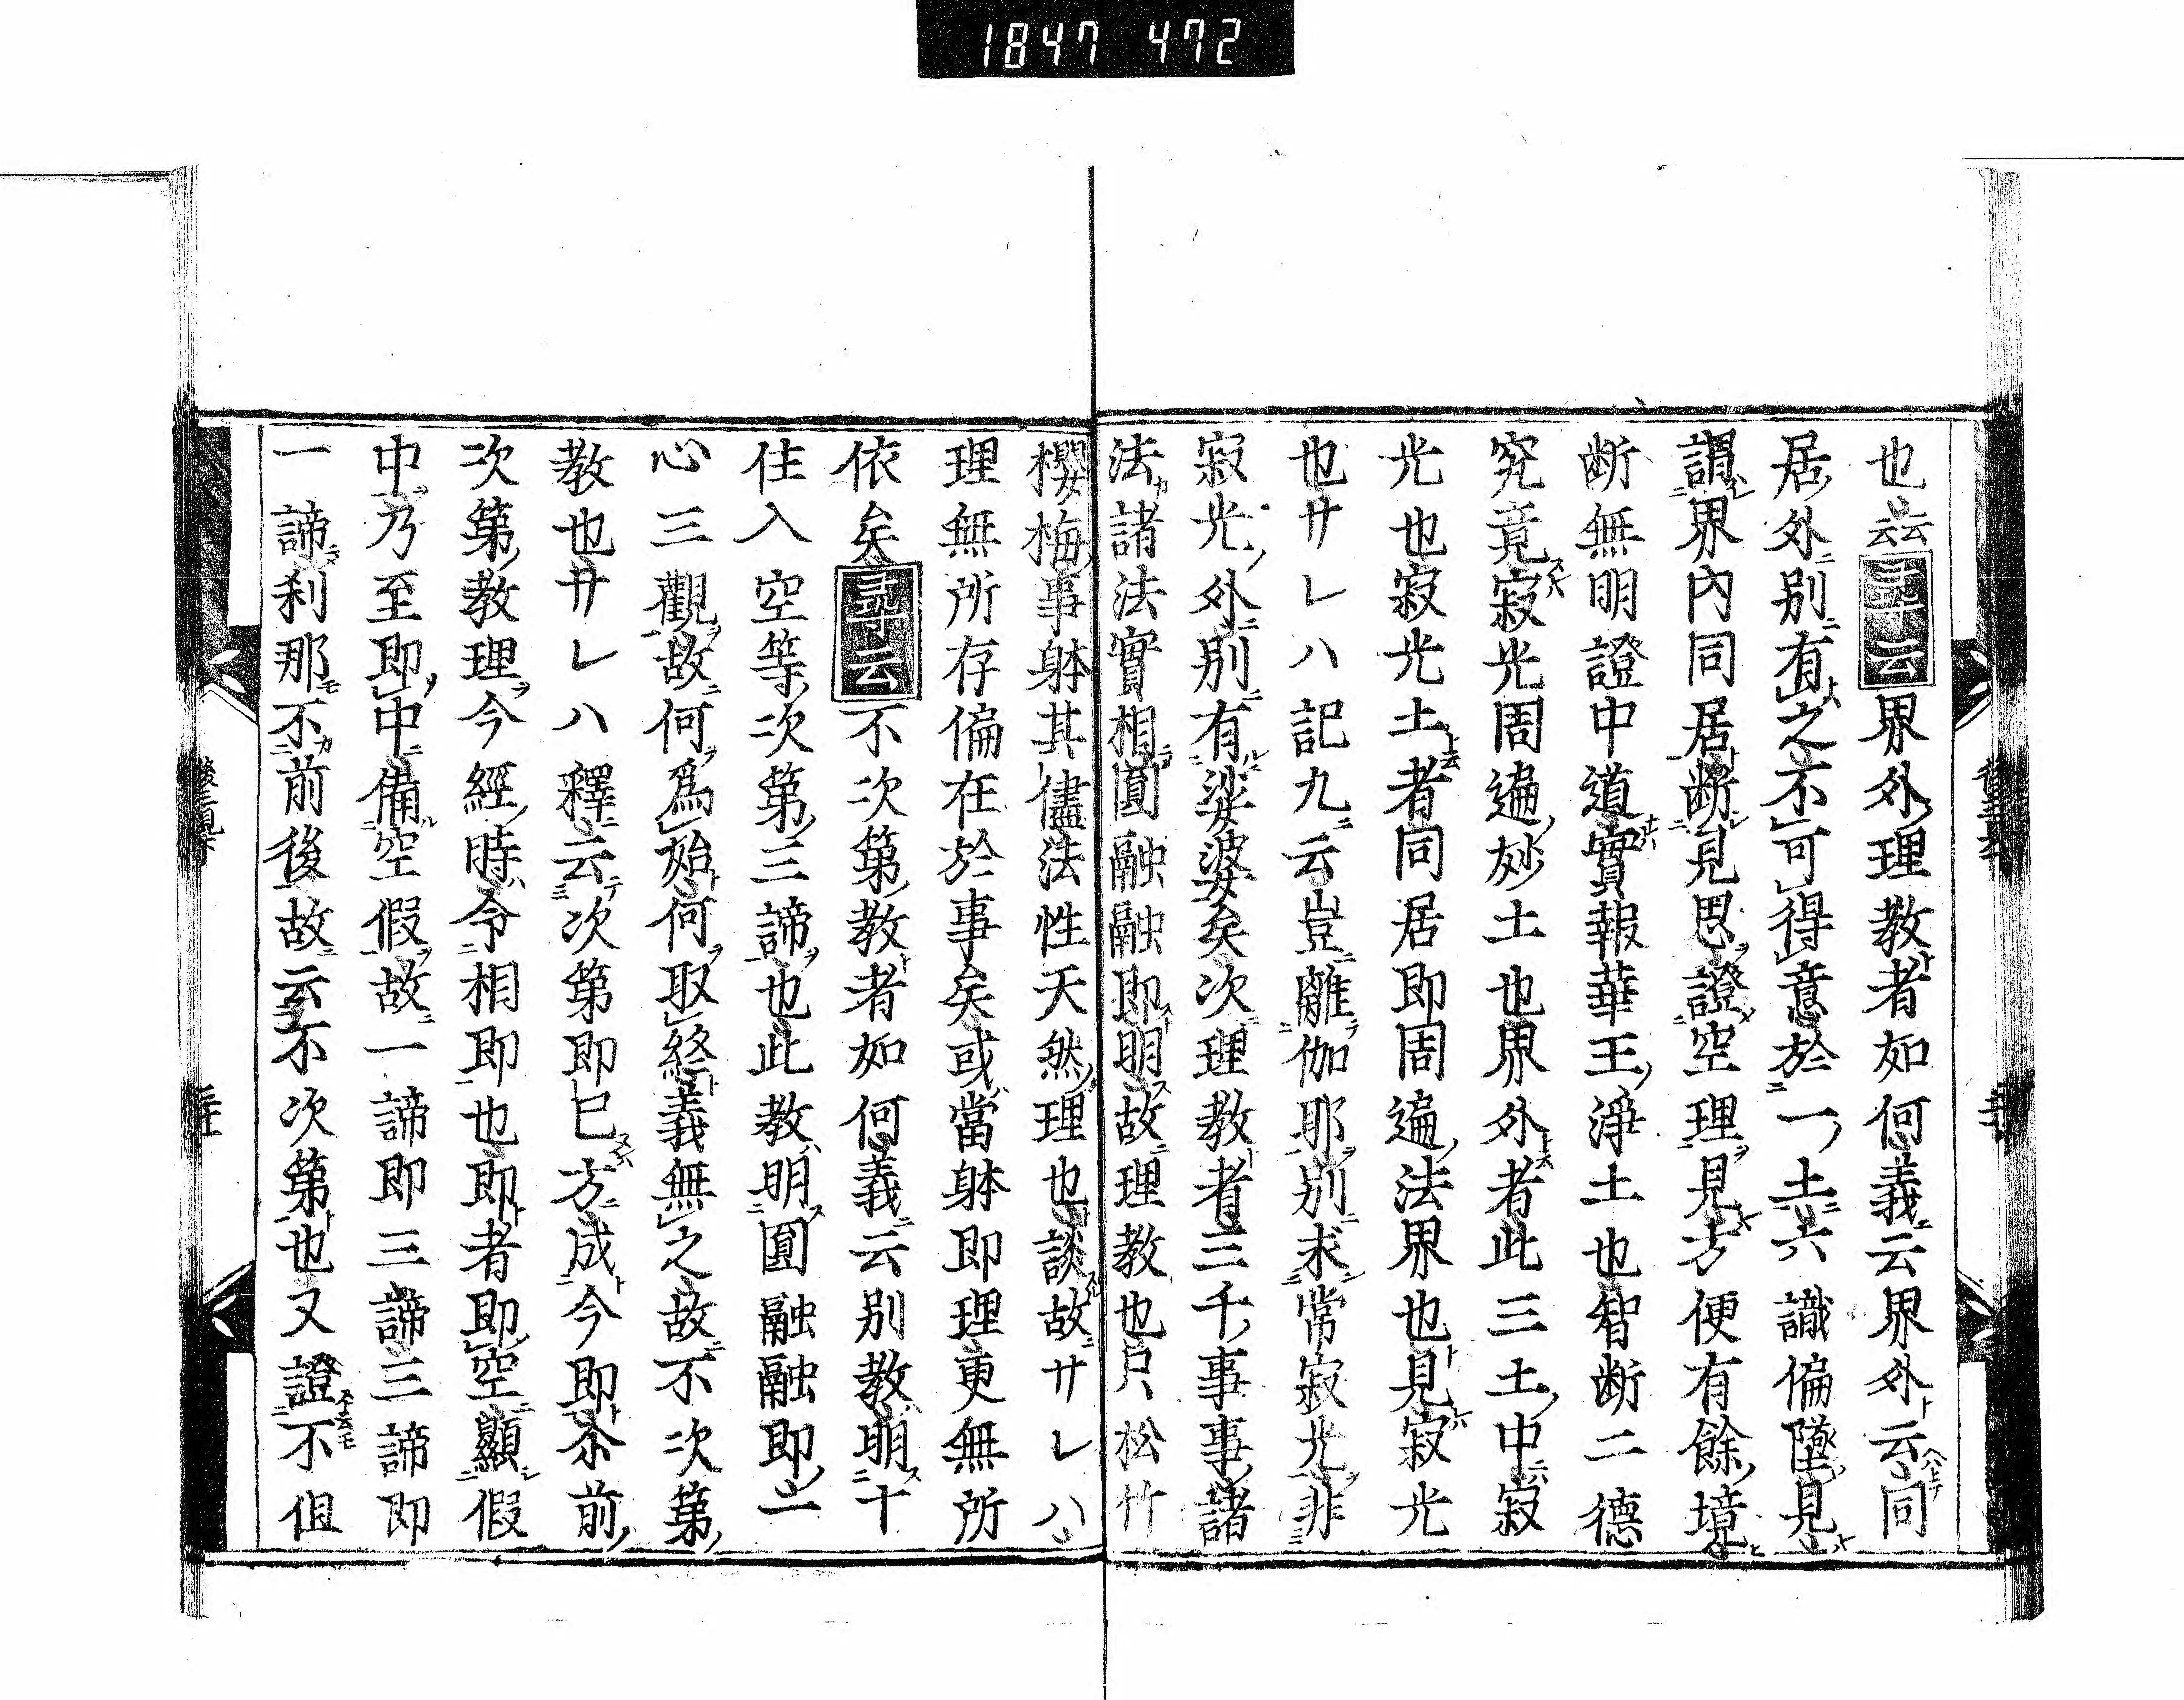 1847 472
也云云尋云界外理教者如何義云界外云同
居外別有之不可得意於一土六識偏墜見
謂界内同居断見思證空理見方便有餘境
断無明證中道實報華王淨土也智断二德
究竟寂光周遍妙土也界外者此三土中寂
光也寂光土者同居即周遍法界也見寂光
也サレハ記九云豈離伽耶別求常寂光非
寂光外別有娑婆矣次理教者三千事事諸
法諸法實相圓融融即明故理教也只松竹
櫻梅事躰其儘法性天然理也談故サレハ
理無所存偏在於事矣或當躰即理更無所
依矣尋云不次第教者如何義云別教明十
住入空等次第三諦也此教明圓融融即一
心三觀故何爲始何取終義無之故不次第
教也サレハ釋云次第即已方成今即尒前
次第教理今經時令相即也即者即空顯假
中乃至即中備空假故一諦即三諦三諦即
一諦刹那不前後故云不次第也又證不但